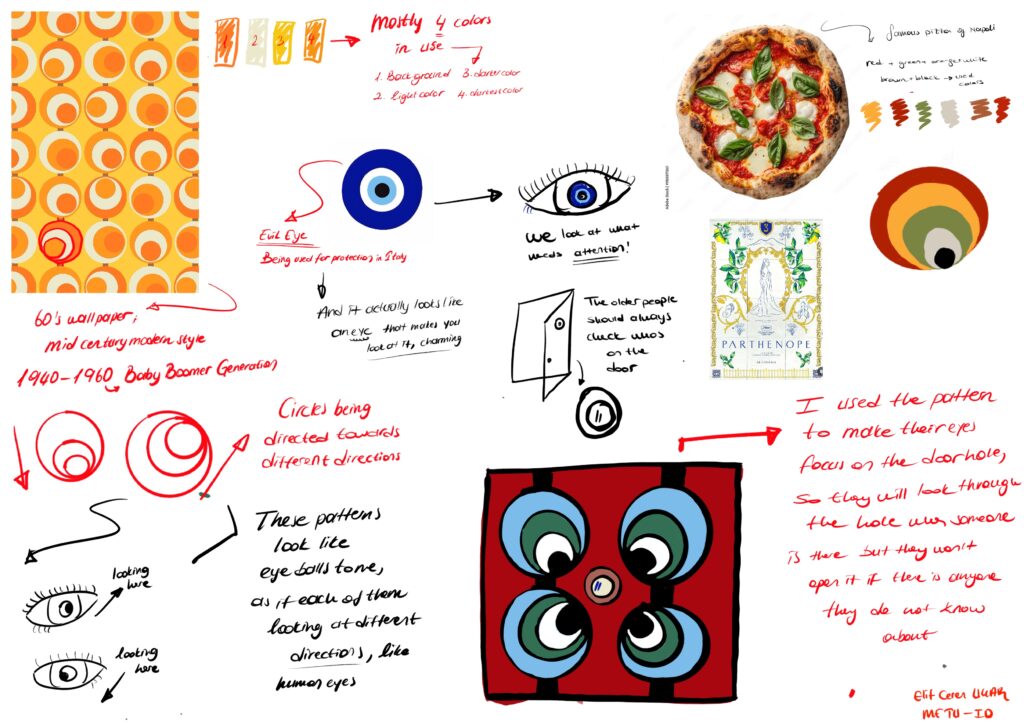 1
2
3
4
Mostly 4 colors
in use
1. Background 3. darker color
2. light color 4. darkest color
famous pizza of Napoli
red + green + orange + white
brown + black → used
colors
Adobe Stock | #
Evil Eye
Being used for protection in Italy
And it actually looks like
an eye that makes you
look at it, charming
we look at what
needs attention!
The older people
should always
check whos
on the
door
3
PARTHENOPE
60's wallpaper,
mid century modern style
1940-1960 Baby Boomer Generation
Circles being
directed towards
different directions
These patterns
look like
eye balls to me,
as if each of them
looking at different
directions, like
human eyes
looking
here
looking
here
I used the pattern
to make their eyes
focus on the doorhole,
So they will look through
the hole when someone
is there but they won't
open it if there is anyone
they do not know
about
Elif Ceren
METU-ID